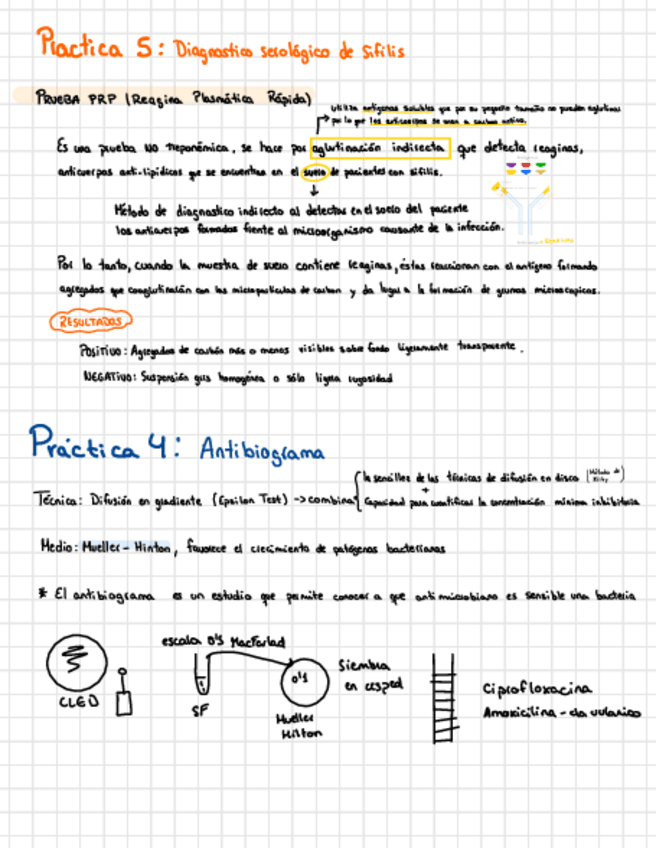 Practica 5: Diagnostico serológico de Sifilis
PRUEBA PRP (Reagina Plasmática Rápida)
Utiliza antígenos solubles que por su pequeño tamaño no pueden aglutinar
por lo que los anticuerpos se unen a carbon activo.
Es una prueba NO treponémica, se hace por aglutinación indirecta que detecta reaginas,
anticuerpos anti-lipídicos que se encuentran en el suero de pacientes con sífilis.
Método de diagnostico indirecto al detectar en el suero del paciente
los anticuerpos formados frente al microorganismo causante de la infección.
Por lo tanto, cuando la muestra de suero contiene reaginas, éstas reaccionan con el antígeno formando
agregados que coaglutinarán con las micropartículas de carbon y da lugar a la formación de grumos microscopicos.
RESULTADOS
POSITIVO: Agregados de carbón más o menos visibles sobre fondo ligeramente transparente.
NEGATIVO: Suspensión gris homogénea o sólo ligera rugosidad
Práctica 4: Antibiograma
la sencillez de las técnicas de difusión en disco (Método de
+
Técnica: Difusión en gradiente (Epsilon Test) -> combina
Capacidad para cuantificar la concentración mínima inhibitoria
Medio: Mueller-Hinton, favorece el crecimiento de patógenos bacterianos
* El antibiograma es un estudio que permite conocer a que antimicrobiano es sensible una bacteria
escala 0'5 MacFarlad
CLED
SF
0'5
Mueller
Hilton
Siembra
en cesped
Ciprofloxacina
Amoxicilina - clavulanico